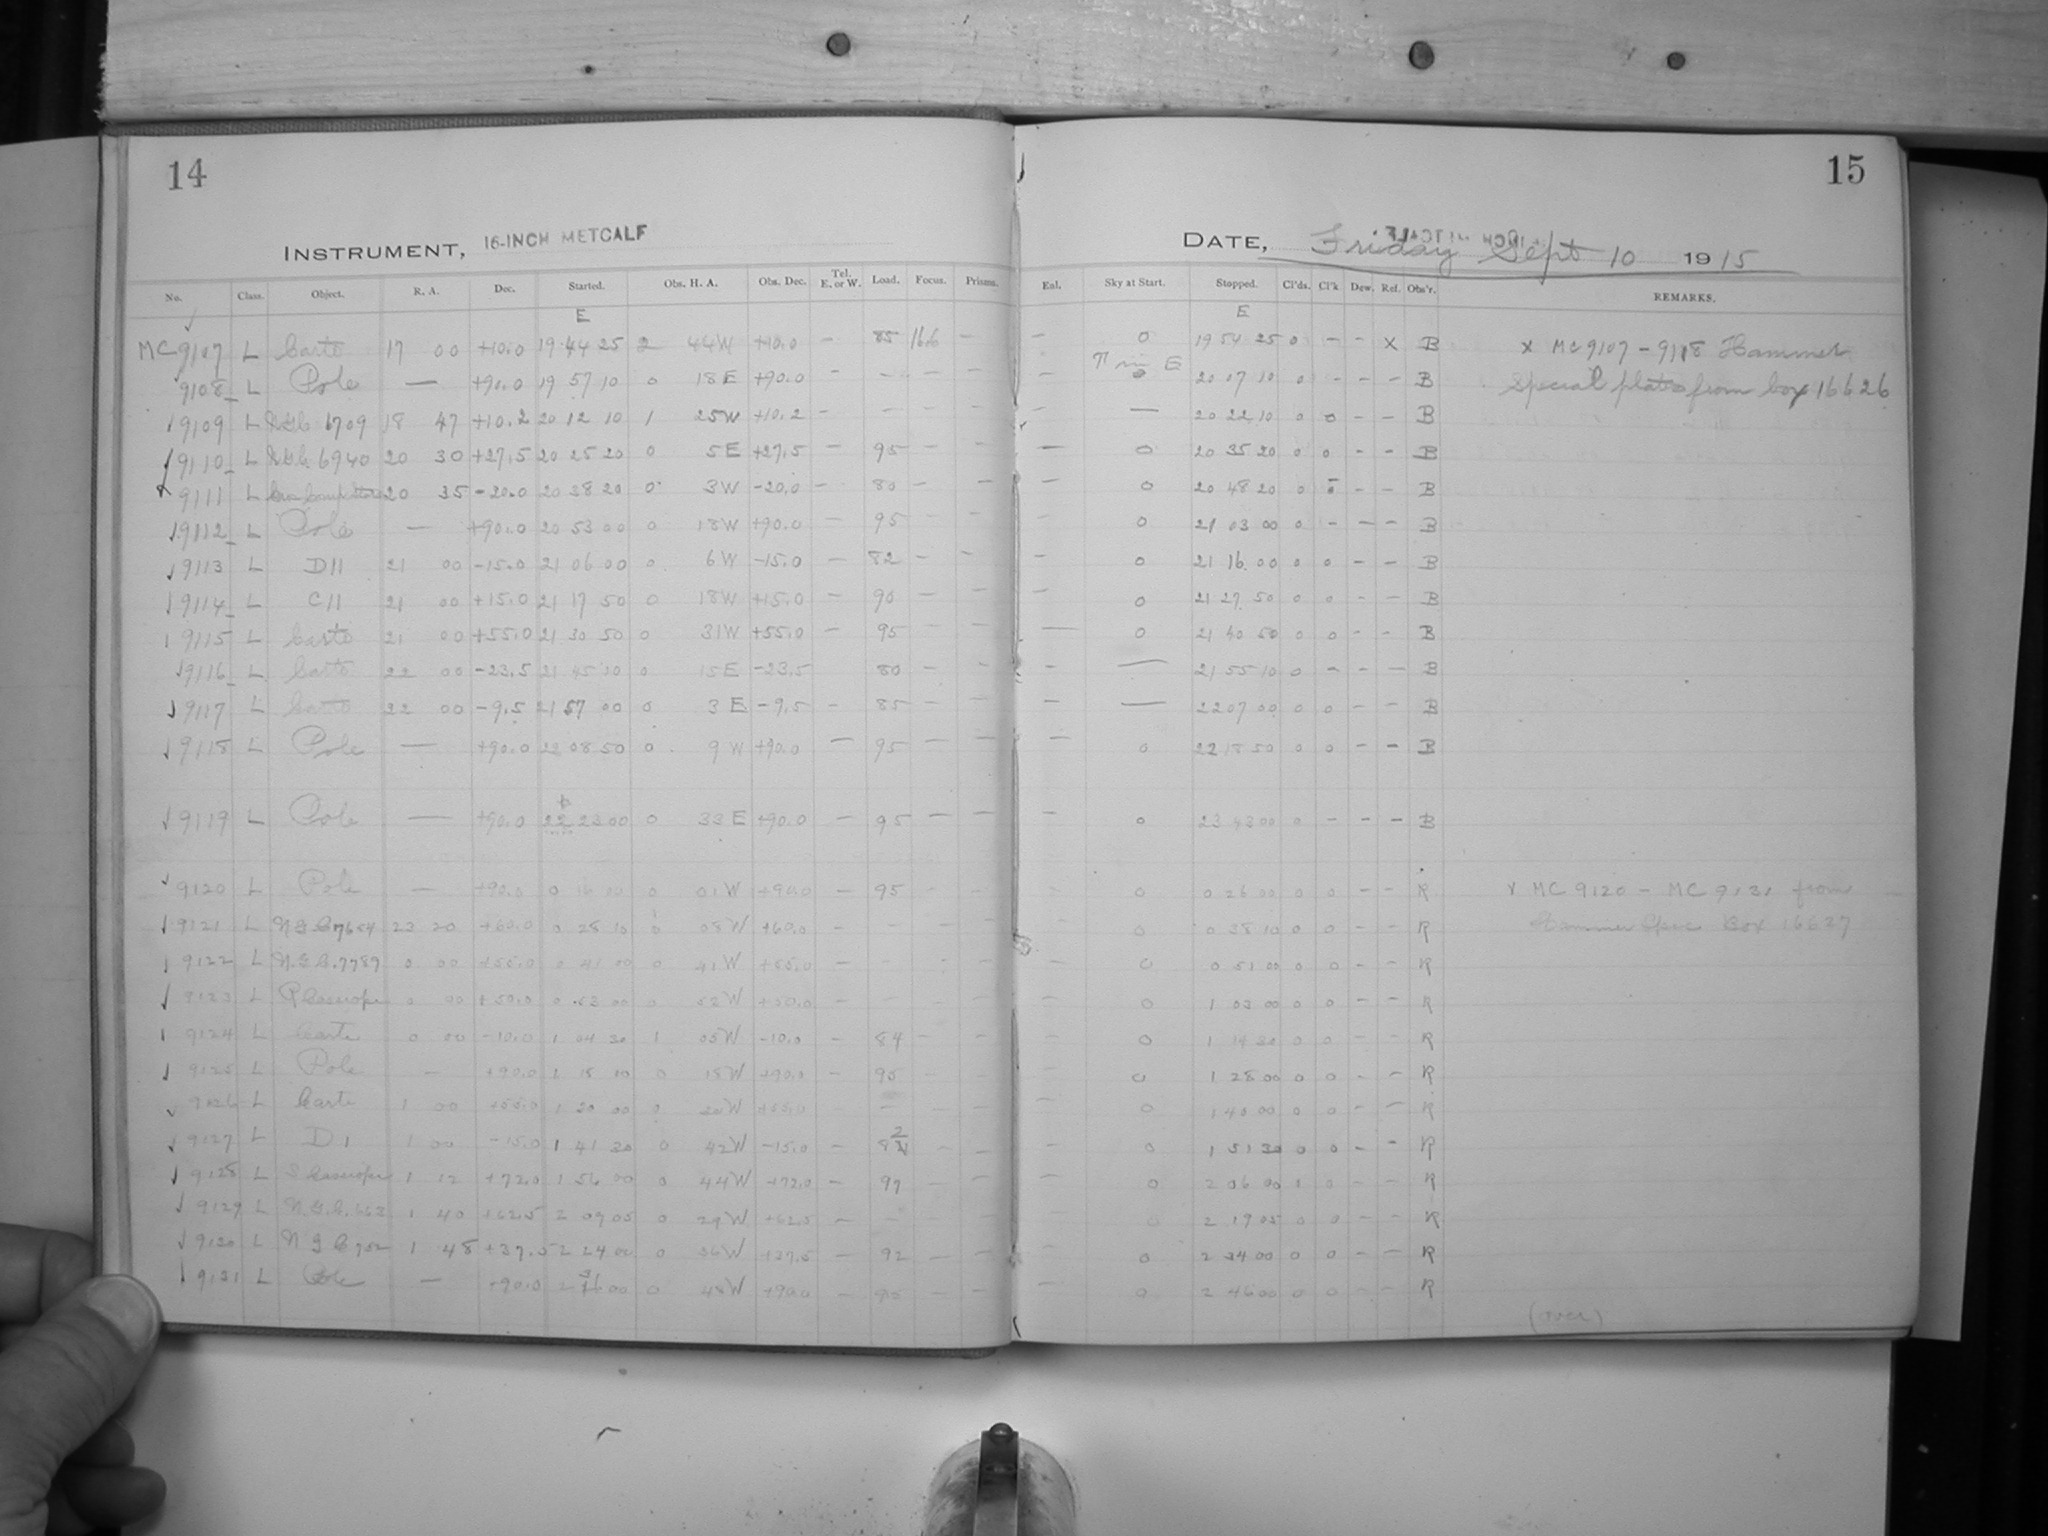 14
15
INSTRUMENT, 16-INCH METCALF
DATE, Friday Sept 10 1915
No. Class. Object. R. A. Dec. Started. Obs. H. A. Obs. Dec. Tel. E. or W. Load. Focus. Prisms. Enl. Sky at Start. Stopped. Cl'ds. Cl'k Dew. Ref. Obs'r. REMARKS.
E E
MC 9107 L Carte 17 00 +10.0 19 44 25 2 44 W +10.0 - 85 166 - - 0 19 54 25 0 - - X B X MC 9107 - 9118 Hammer
9108 L Pole — +90.0 19 57 10 0 18 E +90.0 - - - - - 20 07 10 0 - - - B Special plates from box 16626
9109 L NGC 6709 18 47 +10.2 20 12 10 1 25 W +10.2 - - - - - — 20 22 10 0 0 - - B
9110 L NGC 6940 20 30 +27.5 20 25 20 0 5 E +27.5 - 95 - - - 0 20 35 20 0 0 - - B
9111 L 20 35 -20.0 20 38 20 0 3 W -20.0 - 80 - - - 0 20 48 20 0 - - B
9112 L Pole — +90.0 20 53 00 0 18 W +90.0 - 95 - - - 0 21 03 00 0 - - - B
9113 L D11 21 00 -15.0 21 06 00 0 6 W -15.0 - 82 - - - 0 21 16 00 0 0 - - B
9114 L C11 21 00 +15.0 21 17 50 0 18 W +15.0 - 90 - - - 0 21 27 50 0 0 - - B
9115 L Carte 21 00 +55.0 21 30 50 0 31 W +55.0 - 95 - - — 0 21 40 50 0 0 - - B
9116 L Carte 22 00 -23.5 21 45 10 0 15 E -23.5 80 - - - — 21 55 10 0 - - - B
9117 L Carte 22 00 -9.5 21 57 00 0 3 E -9.5 - 85 - - - — 22 07 00 0 0 - - B
9118 L Pole — +90.0 22 08 50 0 9 W +90.0 - 95 - - - 0 22 18 50 0 0 - - B
9119 L Pole — +90.0 22 23 00 0 33 E +90.0 - 95 - - - 0 23 43 00 0 - - - B
9120 L Pole — +90.0 0 16 00 0 01 W +90.0 - 95 - - - 0 0 26 00 0 0 - - R X MC 9120 - MC 9131 from
9121 L N.G.C. 7654 23 20 +60.0 0 28 10 0 08 W +60.0 - - - - - 0 0 38 10 0 0 - - R Hammer Spec Box 16627
9122 L N.G.C. 7789 0 00 +55.0 0 41 00 0 41 W +55.0 - - - - - 0 0 51 00 0 0 - - R
9123 L 0 00 +50.0 0 53 00 0 52 W +50.0 - - - - - 0 1 03 00 0 0 - - R
9124 L Carte 0 00 -10.0 1 04 30 1 05 W -10.0 - 84 - - - 0 1 14 30 0 0 - - R
9125 L Pole — +90.0 1 18 00 0 15 W +90.0 - 95 - - - 0 1 28 00 0 0 - - R
9126 L Carte 1 00 +55.0 1 30 00 0 30 W +55.0 - - - - - 0 1 40 00 0 0 - - R
9127 L D1 1 00 -15.0 1 41 30 0 42 W -15.0 - 82 - - - 0 1 51 30 0 0 - - R
9128 L 1 12 +72.0 1 56 00 0 44 W +72.0 - 97 - - - 0 2 06 00 1 0 - - R
9129 L N.G.C. 663 1 40 +62.5 2 09 05 0 29 W +62.5 - - - - - 0 2 19 05 0 0 - - R
9130 L N G C 752 1 48 +37.5 2 24 00 0 36 W +37.5 - 92 - - - 0 2 34 00 0 0 - - R
9131 L Pole — +90.0 2 36 00 0 48 W +90.0 - 95 - - - 0 2 46 00 0 0 - - R
(over)